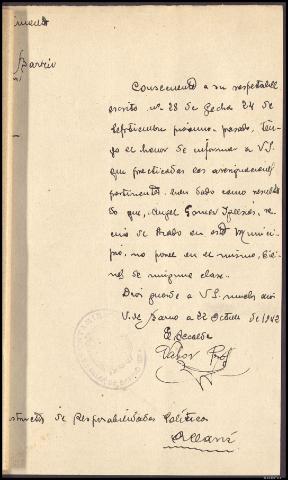 Barrio
Consecuente a su respetable
escrito nº 28 de fecha 24 de
Septiembre próximo pasado, ten-
go el honor de informar a V.S.
que practicadas las averiguaciones
pertinentes, han dado como resulta-
do que, Angel Gomez Iglesias, ve-
cino de Arado en este Munici-
pio, no posee en el mismo, bie-
nes de ninguna clase.
Dios guarde a V.S. muchos años
V. de Barrio a 22 Octubre de 1942
El Alcalde
de Responsabilidades Políticas